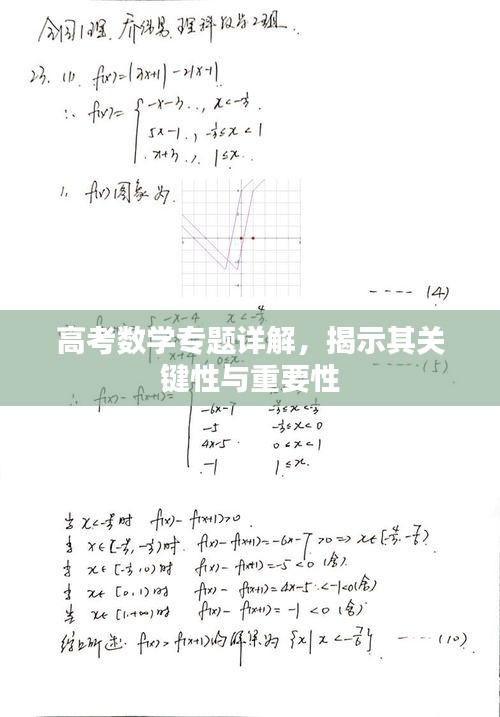 全国I理. 理科数学2组.
23. (1). f(x)=|3x+1|-2|x-1|
∴ f(x)= { -x-3..., x<-⅓.
5x-1.., -⅓≤x<1
x+3.., 1≤x..
f(x)图象为.
---- (4)
5 -x-4 x<-4/3
高考数学专题详解，揭示其关
x+4 0≤x
---- (5)
键性与重要性
∴ f(x)-f(x+1)=
-6x-7 -4/3≤x<-⅓
-5 -⅓≤x<0
4x-5. 0≤x<1
-1 1≤x.
当 x<-4/3 时 f(x)-f(x+1)>0.
当 x∈[-4/3,-⅓)时. f(x)-f(x+1)=-6x-7>0 => x∈[-4/3,-7/6)
当 x∈[-⅓,0)时 f(x)-f(x+1)=-5<0 (舍)
当 x∈[0,1)时 f(x)-f(x+1)=4x-5<-1<0(舍)
当 x∈[1,+∞)时 f(x)-f(x+1)=-1<0 (舍)
综上所述: f(x)>f(x+1)的解集为 {x|x<-7/6} ---- (10)